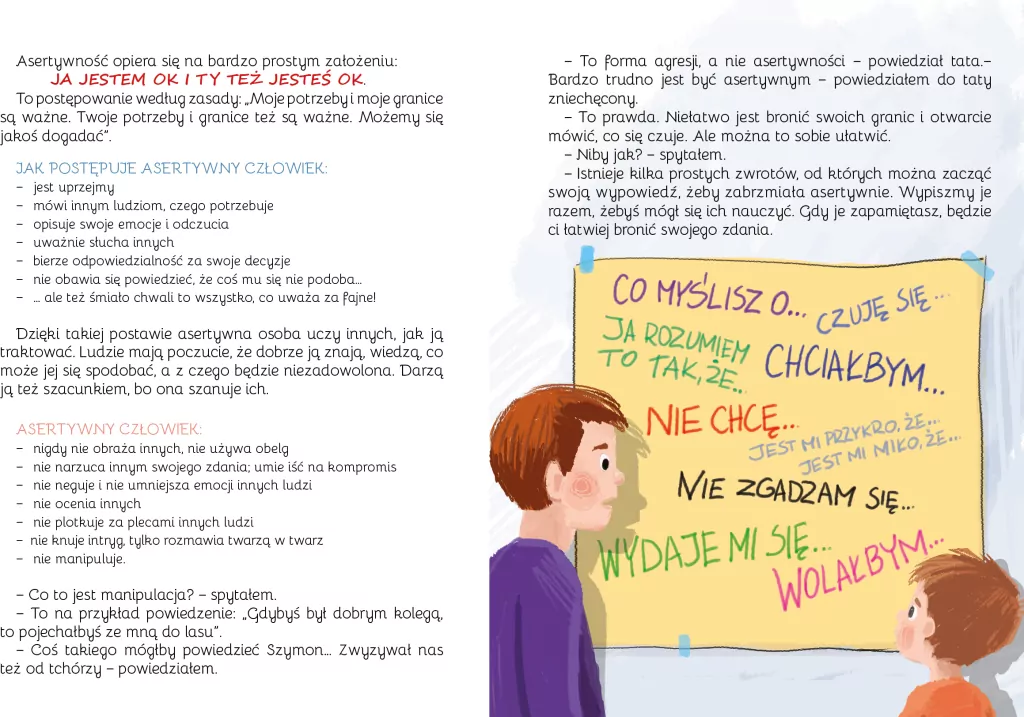 Asertywność opiera się na bardzo prostym założeniu:
JA JESTEM OK I TY TEŻ JESTEŚ OK.
To postępowanie według zasady: „Moje potrzeby i moje granice
są ważne. Twoje potrzeby i granice też są ważne. Możemy się
jakoś dogadać”.
JAK POSTĘPUJE ASERTYWNY CZŁOWIEK:
– jest uprzejmy
– mówi innym ludziom, czego potrzebuje
– opisuje swoje emocje i odczucia
– uważnie słucha innych
– bierze odpowiedzialność za swoje decyzje
– nie obawia się powiedzieć, że coś mu się nie podoba…
– … ale też śmiało chwali to wszystko, co uważa za fajne!
Dzięki takiej postawie asertywna osoba uczy innych, jak ją
traktować. Ludzie mają poczucie, że dobrze ją znają, wiedzą, co
może jej się spodobać, a z czego będzie niezadowolona. Darzą
ją też szacunkiem, bo ona szanuje ich.
ASERTYWNY CZŁOWIEK:
– nigdy nie obraża innych, nie używa obelg
– nie narzuca innym swojego zdania; umie iść na kompromis
– nie neguje i nie umniejsza emocji innych ludzi
– nie ocenia innych
– nie plotkuje za plecami innych ludzi
– nie knuje intryg, tylko rozmawia twarzą w twarz
– nie manipuluje.
– Co to jest manipulacja? – spytałem.
– To na przykład powiedzenie: „Gdybyś był dobrym kolegą,
to pojechałbyś ze mną do lasu”.
– Coś takiego mógłby powiedzieć Szymon… Zwyzywał nas
też od tchórzy – powiedziałem.
– To forma agresji, a nie asertywności – powiedział tata.–
Bardzo trudno jest być asertywnym – powiedziałem do taty
zniechęcony.
– To prawda. Niełatwo jest bronić swoich granic i otwarcie
mówić, co się czuje. Ale można to sobie ułatwić.
– Niby jak? – spytałem.
– Istnieje kilka prostych zwrotów, od których można zacząć
swoją wypowiedź, żeby zabrzmiała asertywnie. Wypiszmy je
razem, żebyś mógł się ich nauczyć. Gdy je zapamiętasz, będzie
ci łatwiej bronić swojego zdania.
CO MYŚLISZ O...
CZUJĘ SIĘ...
JA ROZUMIEM
TO TAK, ŻE...
CHCIAŁBYM...
NIE CHCĘ...
JEST MI PRZYKRO, ŻE...
JEST MI MIŁO, ŻE...
NIE ZGADZAM SIĘ...
WYDAJE MI SIĘ...
WOLAŁBYM...